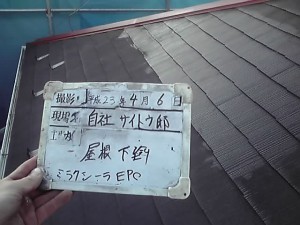 撮影 平成23年4月6日
現場名 自社 サイトウ邸
屋根 下塗り
ミラクシーラEPO